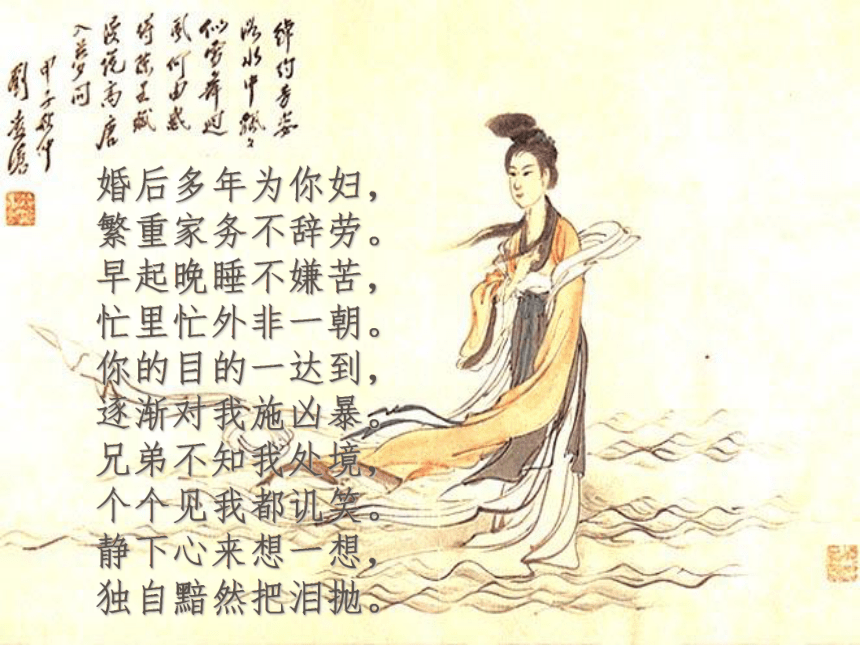 綽约芳姿
洛水中飄々
似雪舞迴
風何由感
陳王賦
漫説高唐
甲子秋仲
劉凌滄
婚后多年为你妇，
繁重家务不辞劳。
早起晚睡不嫌苦，
忙里忙外非一朝。
你的目的一达到，
逐渐对我施凶暴。
兄弟不知我处境，
个个见我都讥笑。
静下心来想一想，
独自黯然把泪抛。